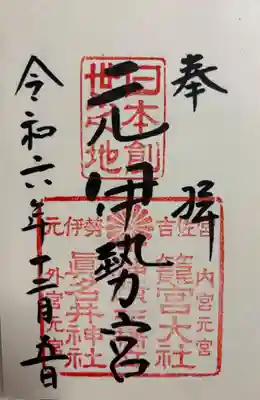 奉拝
元伊勢宮
令和六年十二月五日
日本創
世之地
元伊勢
吉佐宮
内宮元宮
籠宮大社
眞名井神社
外宮元宮